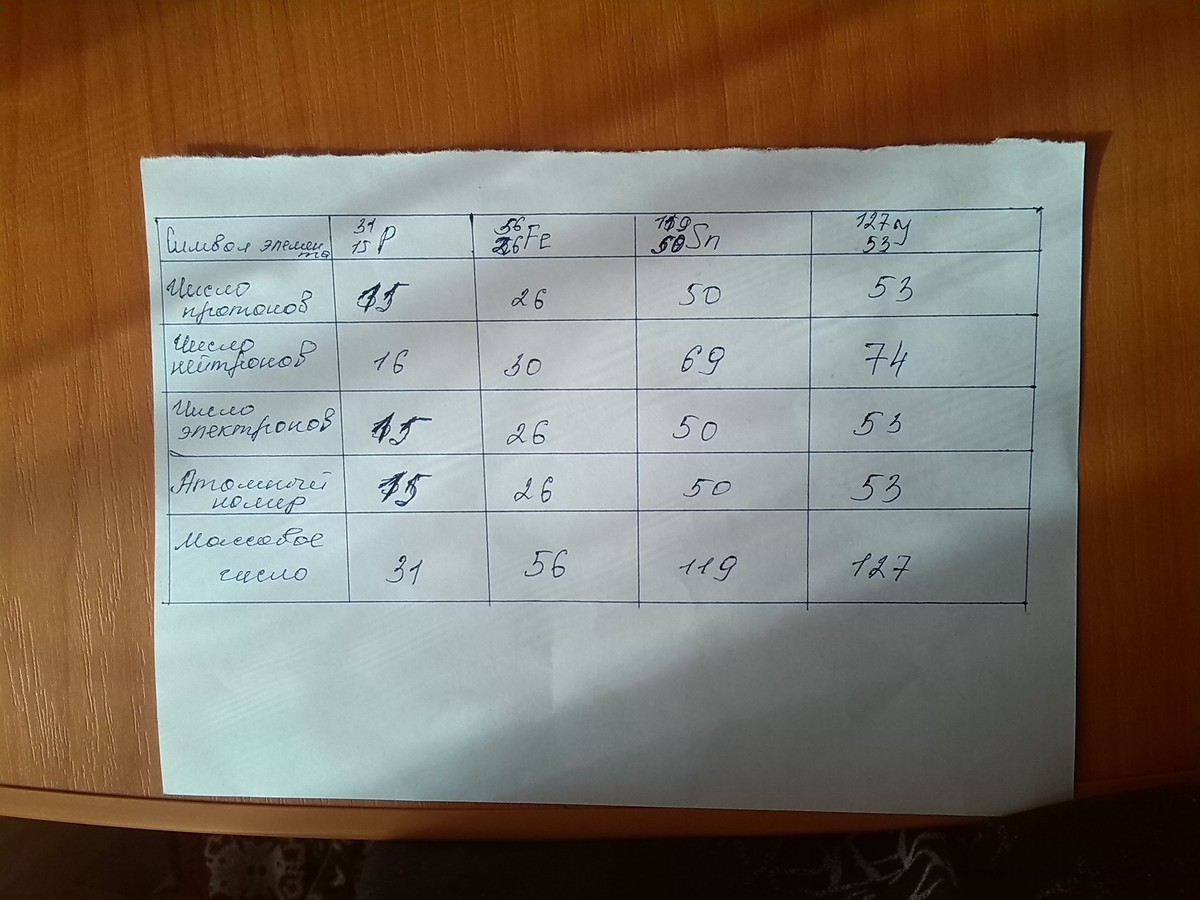 Символ элемен та 31 15 P 56 26 Fe 119 50 Sn 127 53 y
Число протонов 15 26 50 53
Число нейтронов 16 30 69 74
Число электронов 15 26 50 53
Атомный номер 15 26 50 53
Массовое число 31 56 119 127